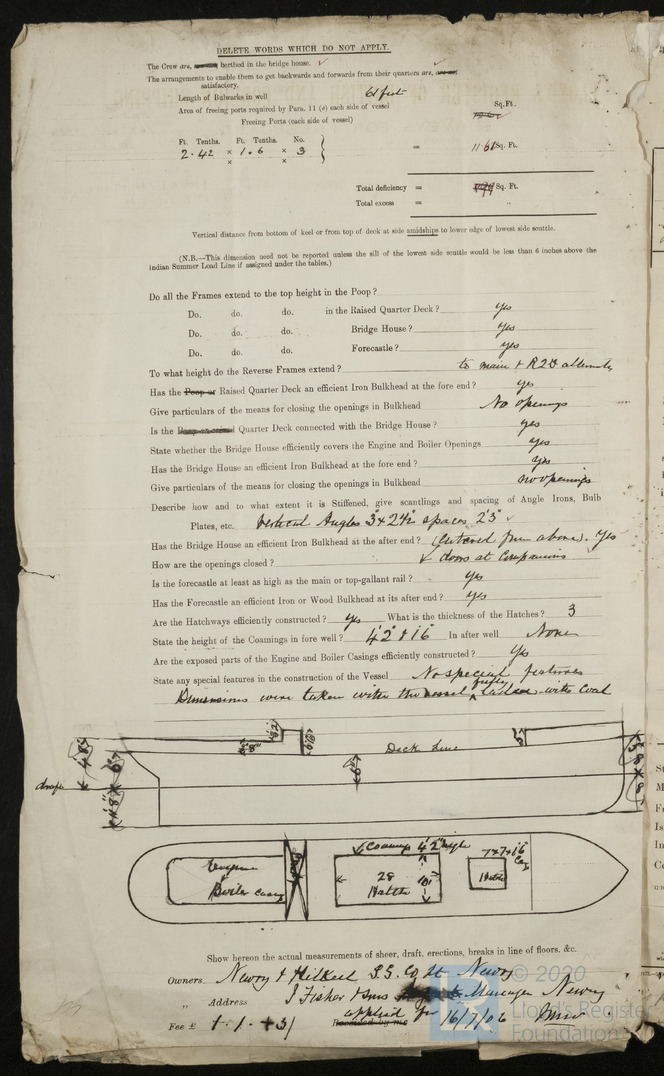 DELETE WORDS WHICH DO NOT APPLY.
The Crew are, berthed in the bridge house. ✓
The arrangements to enable them to get backwards and forwards from their quarters are, are not
satisfactory.
Length of Bulwarks in well 61 feet
Area of freeing ports required by Para. 11 (e) each side of vessel Sq. Ft.
Freeing Ports (each side of vessel)
Ft. Tenths. Ft. Tenths. No.
2.42 × 1.6 × 3 = 11.61 Sq. Ft.
× ×
Total deficiency = Sq. Ft.
Total excess = "
Vertical distance from bottom of keel or from top of deck at side amidships to lower edge of lowest side scuttle.
(N.B.—This dimension need not be reported unless the sill of the lowest side scuttle would be less than 6 inches above the
Indian Summer Load Line if assigned under the tables.)
Do all the Frames extend to the top height in the Poop?
Do. do. do. in the Raised Quarter Deck? yes
Do. do. do. Bridge House? yes
Do. do. do. Forecastle? yes
To what height do the Reverse Frames extend? to main & R2D alternately
Has the Poop or Raised Quarter Deck an efficient Iron Bulkhead at the fore end? yes
Give particulars of the means for closing the openings in Bulkhead No openings
Is the Quarter Deck connected with the Bridge House? yes
State whether the Bridge House efficiently covers the Engine and Boiler Openings yes
Has the Bridge House an efficient Iron Bulkhead at the fore end? yes
Give particulars of the means for closing the openings in Bulkhead no openings
Describe how and to what extent it is Stiffened, give scantlings and spacing of Angle Irons, Bulb
Plates, etc. Vertical Angles 3 x 2½ spaces 2'3" ✓
Has the Bridge House an efficient Iron Bulkhead at the after end? (Entered from above). Yes
How are the openings closed? ✓ doors at Companions
Is the forecastle at least as high as the main or top-gallant rail? yes
Has the Forecastle an efficient Iron or Wood Bulkhead at its after end? yes
Are the Hatchways efficiently constructed? yes What is the thickness of the Hatches? 3
State the height of the Coamings in fore well? 4'2" & 16" In after well None
Are the exposed parts of the Engine and Boiler Casings efficiently constructed? Yes
State any special features in the construction of the Vessel No special features
Dimensions were taken with the vessel laden with Coal
Deck Line
Engine
& Boiler Casing
Coamings 4'2" high
28
Hatch
7x7x16
Hatch
Show hereon the actual measurements of sheer, draft, erections, breaks in line of floors, &c.
Owners Newry & Kilkeel S.S. Co Ld Newry
" Address J Fisher & Sons Managers Newry
Fee £ 1 . 1 . + 3/ applied for 16/7/06
Received by me
© 2020
Lloyd's Register
Foundation